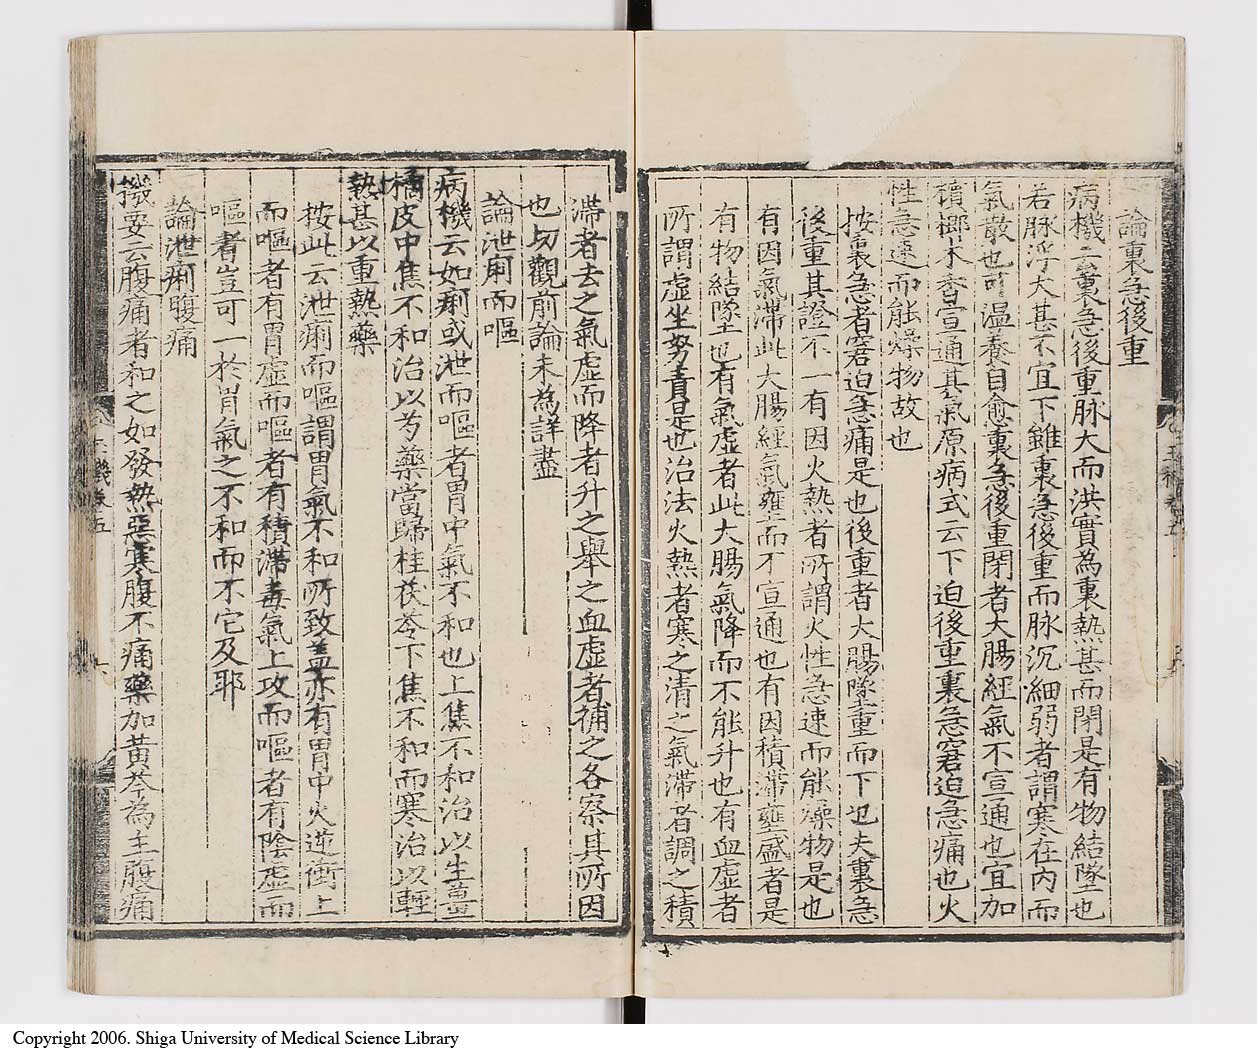 論裏急後重
病機云裏急後重脉大而洪實為裏熱甚而閉是有物結墜也
若脉浮大甚不宜下雖裏急後重而脉沉細弱者謂寒在内而
氣散也可温養自愈裏急後重閉者大腸經氣不宣通也宜加
檳榔木香宣通其氣原病式云下迫後重裏急窘迫急痛也火
性急速而能燥物故也
按裏急者窘迫急痛是也後重者大腸墜重而下也夫裏急
後重其證不一有因火熱者所謂火性急速而能燥物是也
有因氣滯此大腸經氣壅而不宣通也有因積滯壅盛者是
有物結墜也有氣虚者此大腸氣降而不能升也有血虚者
所謂虚坐努責是也治法火熱者寒之清之氣滯者調之積
滯者去之氣虚而降者升之舉之血虚者補之各察其所因
也切觀前論未為詳盡
論泄痢而嘔
病機云如痢或泄而嘔者胃中氣不和也上焦不和治以生薑
橘皮中焦不和治以芍藥當歸桂茯苓下焦不和而寒治以輕
熱甚以重熱藥
按此云泄痢而嘔謂胃氣不和所致盖亦有胃中火逆衝上
而嘔者有胃虚而嘔者有積滯毒氣上攻而嘔者有陰虚而
嘔者豈可一於胃氣之不和而不它及耶
論泄痢腹痛
撮要云腹痛者和之如發熱惡寒腹不痛藥加黄芩為主腹痛